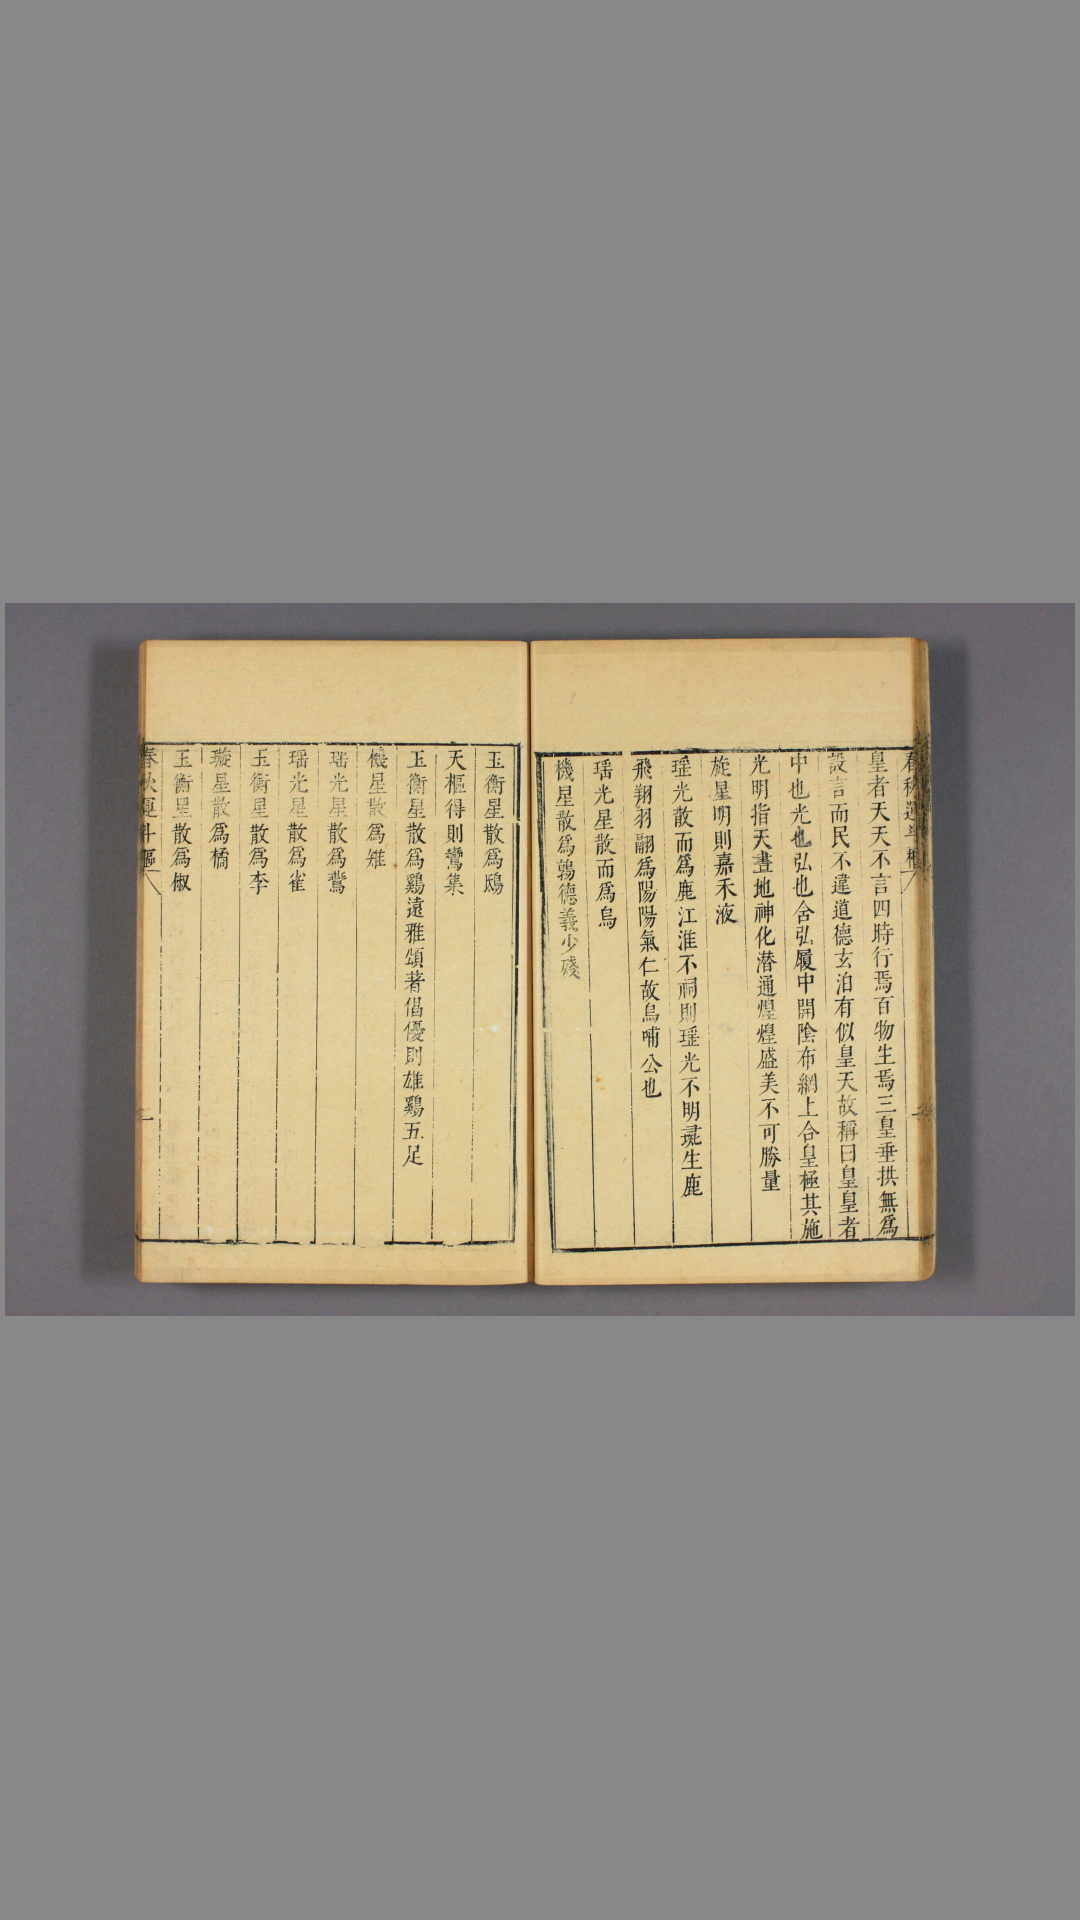 春秋運斗樞
皇者天天不言四時行焉百物生焉三皇垂拱無爲
設言而民不違道德玄泊有似皇天故稱曰皇皇者
中也光也弘也含弘履中開陰布綱上合皇極其施
光明指天畫地神化潛通煌煌盛美不可勝量
旋星明則嘉禾液
瑶光散而爲鹿江淮不祠則瑶光不明麋生鹿
飛翔羽翮爲陽陽氣仁故烏哺公也
瑶光星散而爲烏
機星散爲鶉德義少殘
玉衡星散爲鴟
天樞得則鸞集
玉衡星散爲鷄遠雅頌著倡優則雄鷄五足
機星散爲雉
瑶光星散爲鷩
瑶光星散爲雀
玉衡星散爲李
璇星散爲橘
玉衡星散爲椒
春秋運斗樞
二